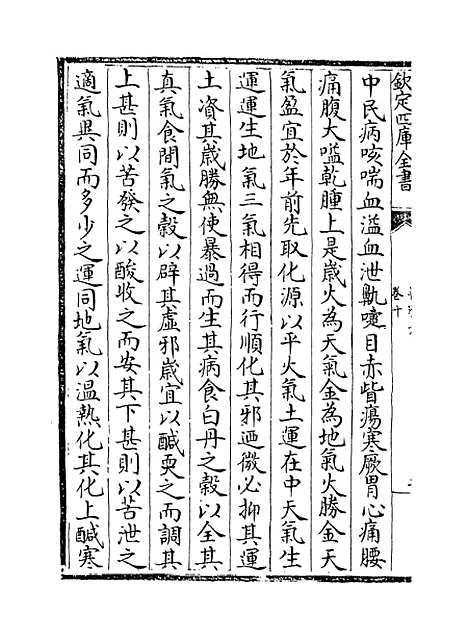 欽定四庫全書
卷十
中民病咳喘血溢血泄鼽嚏目赤眥瘍寒厥胃心痛腰
痛腹大嗌乾腫上是嵗火為天氣金為地氣火勝金天
氣盈宜於年前先取化源以平火氣土運在中天氣生
運運生地氣三氣相得而行順化其邪迺微必抑其運
土資其嵗勝無使暴過而生其病食白丹之穀以全其
真氣食間氣之穀以辟其虛邪嵗宜以鹹耎之而調其
上甚則以苦發之以酸收之而安其下甚則以苦泄之
適氣異同而多少之運同地氣以温熱化其化上鹹寒